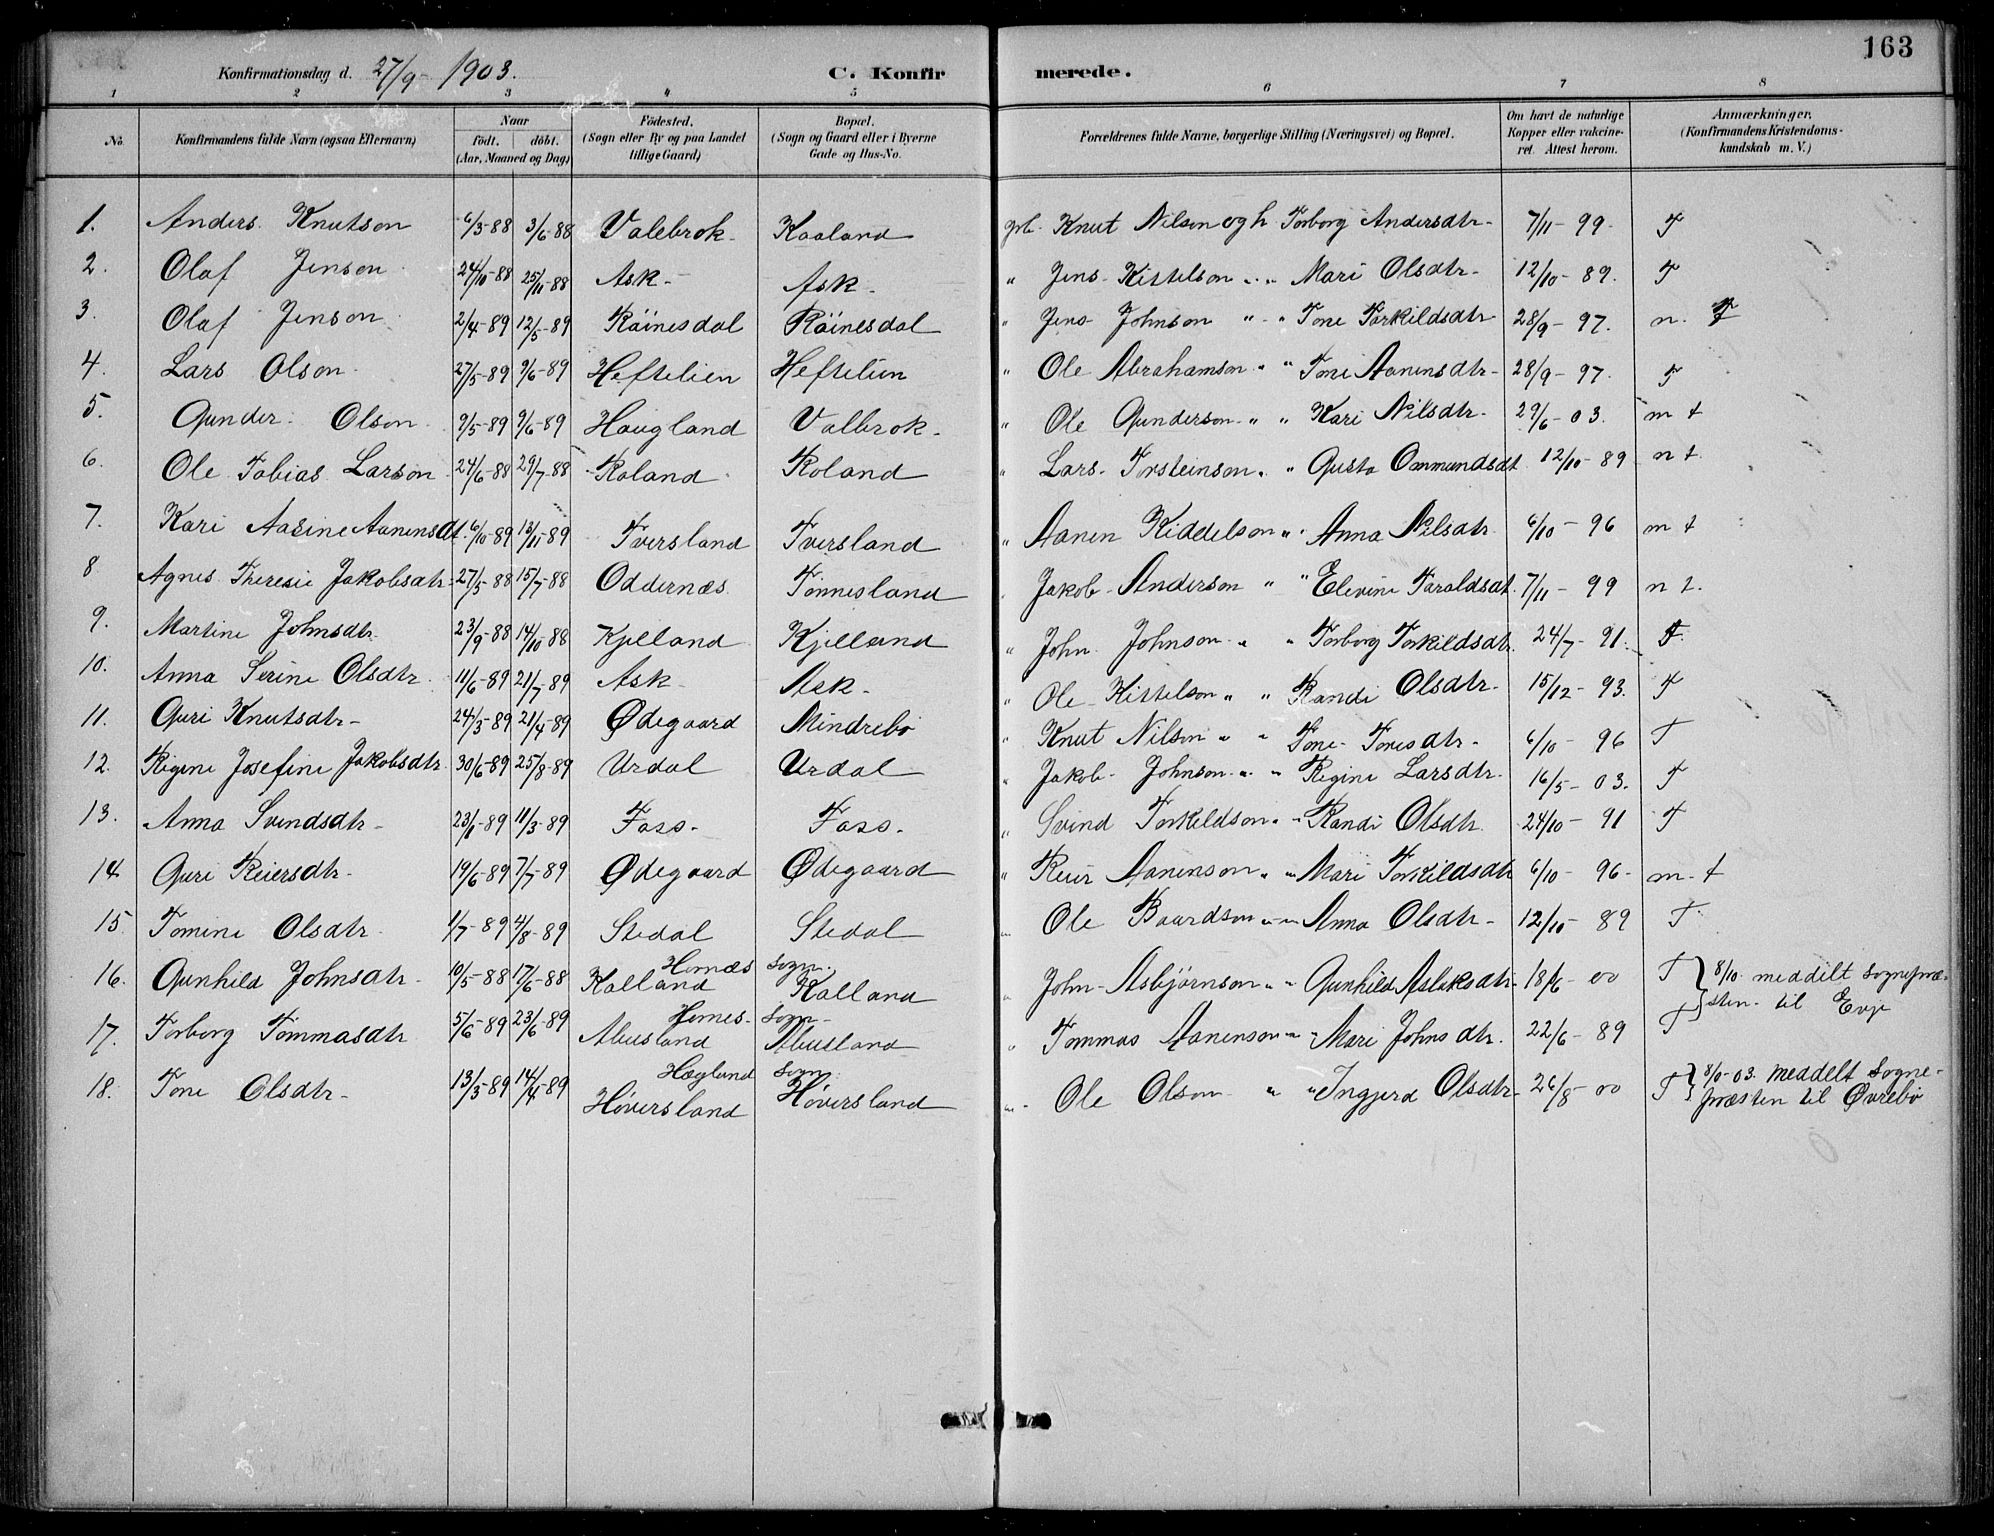 163
Konfirmationsdag d. 27/9 - 1903. C. Konfirmerede.
1 2 3 4 5 6 7 8
No. Konfirmandens fulde Navn (ogsaa Efternavn) Naar födt. döbt. (Aar, Maaned og Dag) Födested. (Sogn eller By og paa Landet tillige Gaard) Bopæl. (Sogn og Gaard eller i Byerne Gade og Hus-No. Forældrenes fulde Navne, borgerlige Stilling (Næringsvei) og Bopæl. Om havt de naturlige Kopper eller vakcineret. Attest herom. Anmærkninger. (Konfirmandens Kristendomskundskab m. V.)
1. Anders Knutson 6/3-88 3/6-88 Valebrok Kaaland grb. Knut Nilson og h Torborg Andersdtr- 7/11-99. T
2. Olaf Jenson 24/10-88 25/11-88 Ask- Ask- " Jens Kittelson " " Mari Olsdtr- 12/10-89. T
3. Olaf Jenson 2/4-89 12/5-89 Röinesdal Röinesdal " Jens Johnson " " Tone Torkildsdtr- 28/9-97. n. T
4. Lars Olson 27/5-89 9/6-89 Heftelien Heftelien " Ole Abrahamson " " Tone Aanensdtr- 28/9-97. T
5. Gunder Olson 9/5-89 9/6-89 Haugland Valbrok- " Ole Gunderson " " Kari Nilsdtr- 29/6-03. m t
6. Ole Tobias Larson 24/6-88 29/7-88 Roland Roland " Lars Torsteinson " " Gusta Ommundsdt 12/10-89 n t.
7. Kari Aasine Aanensdt. 6/10-89 13/11-89 Tversland Tversland " Aanen Kiddelson " " Anna Nilsdtr 6/10-96 m t
8 Agnes Theresie Jakobsdtr- 27/5-88 15/7-88 Oddernæs Tönnesland " Jakob Anderson " " Elevine Taraldsdt. 7/11-99 n t.
9. Martine Johnsdtr. 23/9-88 14/10-88 Kjelland Kjelland " John Johnson " " Torborg Torkildsdtr. 24/7-91. T
10. Anna Serine Olsdtr. 11/6-89 21/7-89 Ask- Ask- " Ole Kittelson " " Randi Olsdtr- 15/12-93. T
11. Guri Knutsdtr- 24/3-89 21/4-89 Ødegaard Mindrebö " Knut Nilson " " Tone Tonesdtr- 6/10-96 T
12. Regine Josefine Jakobsdtr. 30/6-89 25/8-89 Urdal Urdal " Jakob Johnson " " Regine Larsdtr- 16/5-03. T
13. Anna Svindsdtr- 23/1-89 11/3-89 Foss- Foss- " Svind Torkildson " " Randi Olsdtr. 24/10-91 T
14 Guri Reiersdtr- 19/6-89 7/7-89 Ødegaard Ødegaard " Reier Aanenson " " Mari Torkildsdtr 6/10-96- m-t
15 Tomine Olsdtr. 1/7-89 4/8-89 Stedal Stedal " Ole Baardson " " Anna Olsdtr- 12/10-89 T
16. Gunhild Johnsdtr- 10/5-88 17/6-88 Hornæs sogn. Kalland Kalland " John Asbjörnson " " Gunhild Aslaksdtr- 18/6-00 T } 8/10 meddelt sognepræsten til Evje
17. Torborg Tommasdtr 5/6-89 23/6-89 Hornes sogn- Abusland Abusland " Tommas Aanenson " " Mari Johnsdtr. 22/6-89 T
18. Tone Olsdtr- 13/3-89 14/4-89 Hæglund sogn Höversland Höversland " Ole Olson " " Ingjerd Olsdtr- 26/8-00 T } 8/10-03. meddelt Sognepræsten til Øvrebö